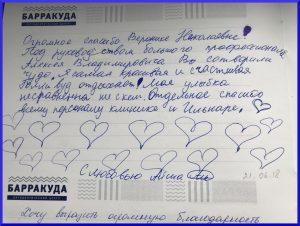 БАРРАКУДА
Огромное спасибо Веронике Николаевне!
Под руководством большого профессионала
Алексея Владимировича Вы сотворили
чудо. Я самая красивая и счастливая
Голливуд отдыхает! Моя улыбка
несравненна ни с кем. Отдельное спасибо
всему персоналу клиники и Ильнаре.
С Любовью Алина
21.06.18
БАРРАКУДА
Хочу выразить огромную благодарность